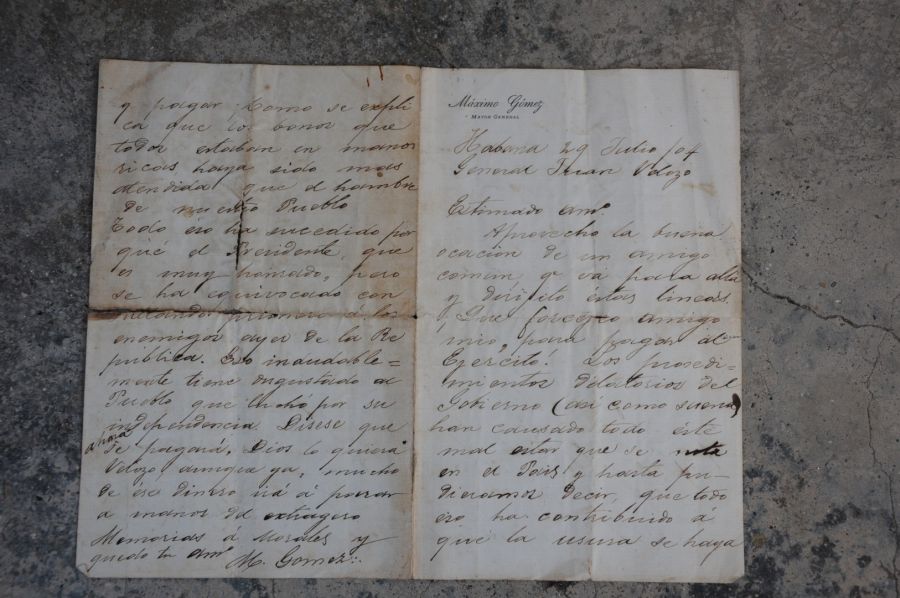 Máximo Gómez
MAYOR GENERAL
Habana 29 Julio/04
General Juan Velozo
Estimado amº
Aprovecho la buena
ocacion de un amigo
comun qº vá para alla
y dirijito éstas lineas
amigo
mio, para pagar al
Ejército! Los procedi-
mientos dilatorios del
Gobierno (asi como suena)
han causado todo éste
mal estar que se nota
en el Pais y hasta pu-
dieramos decir, que todo
éso ha contribuido á
que la usura se haya
y pagar. Como se expli
cá que los bonos que
todos estaban en manos
ricas haya sido mas
atendida que el hambre
de nuestro Pueblo
Todo éso ha sucedido por
qué el Presidente, que
es muy honrado, pero
se ha equivocado con
a los
enemigos ayer de la Re
publica. Eso inaudable=
mente tiene disgustado al
Pueblo que luchó por su
independencia. Disese que
ahora
se pagará, Dios lo quiera
Velozo aunque ya, mucho
de ése dinero irá á parar
a manos del extragero
Memorias á Morales y
quedo tu amº
M. Gomez